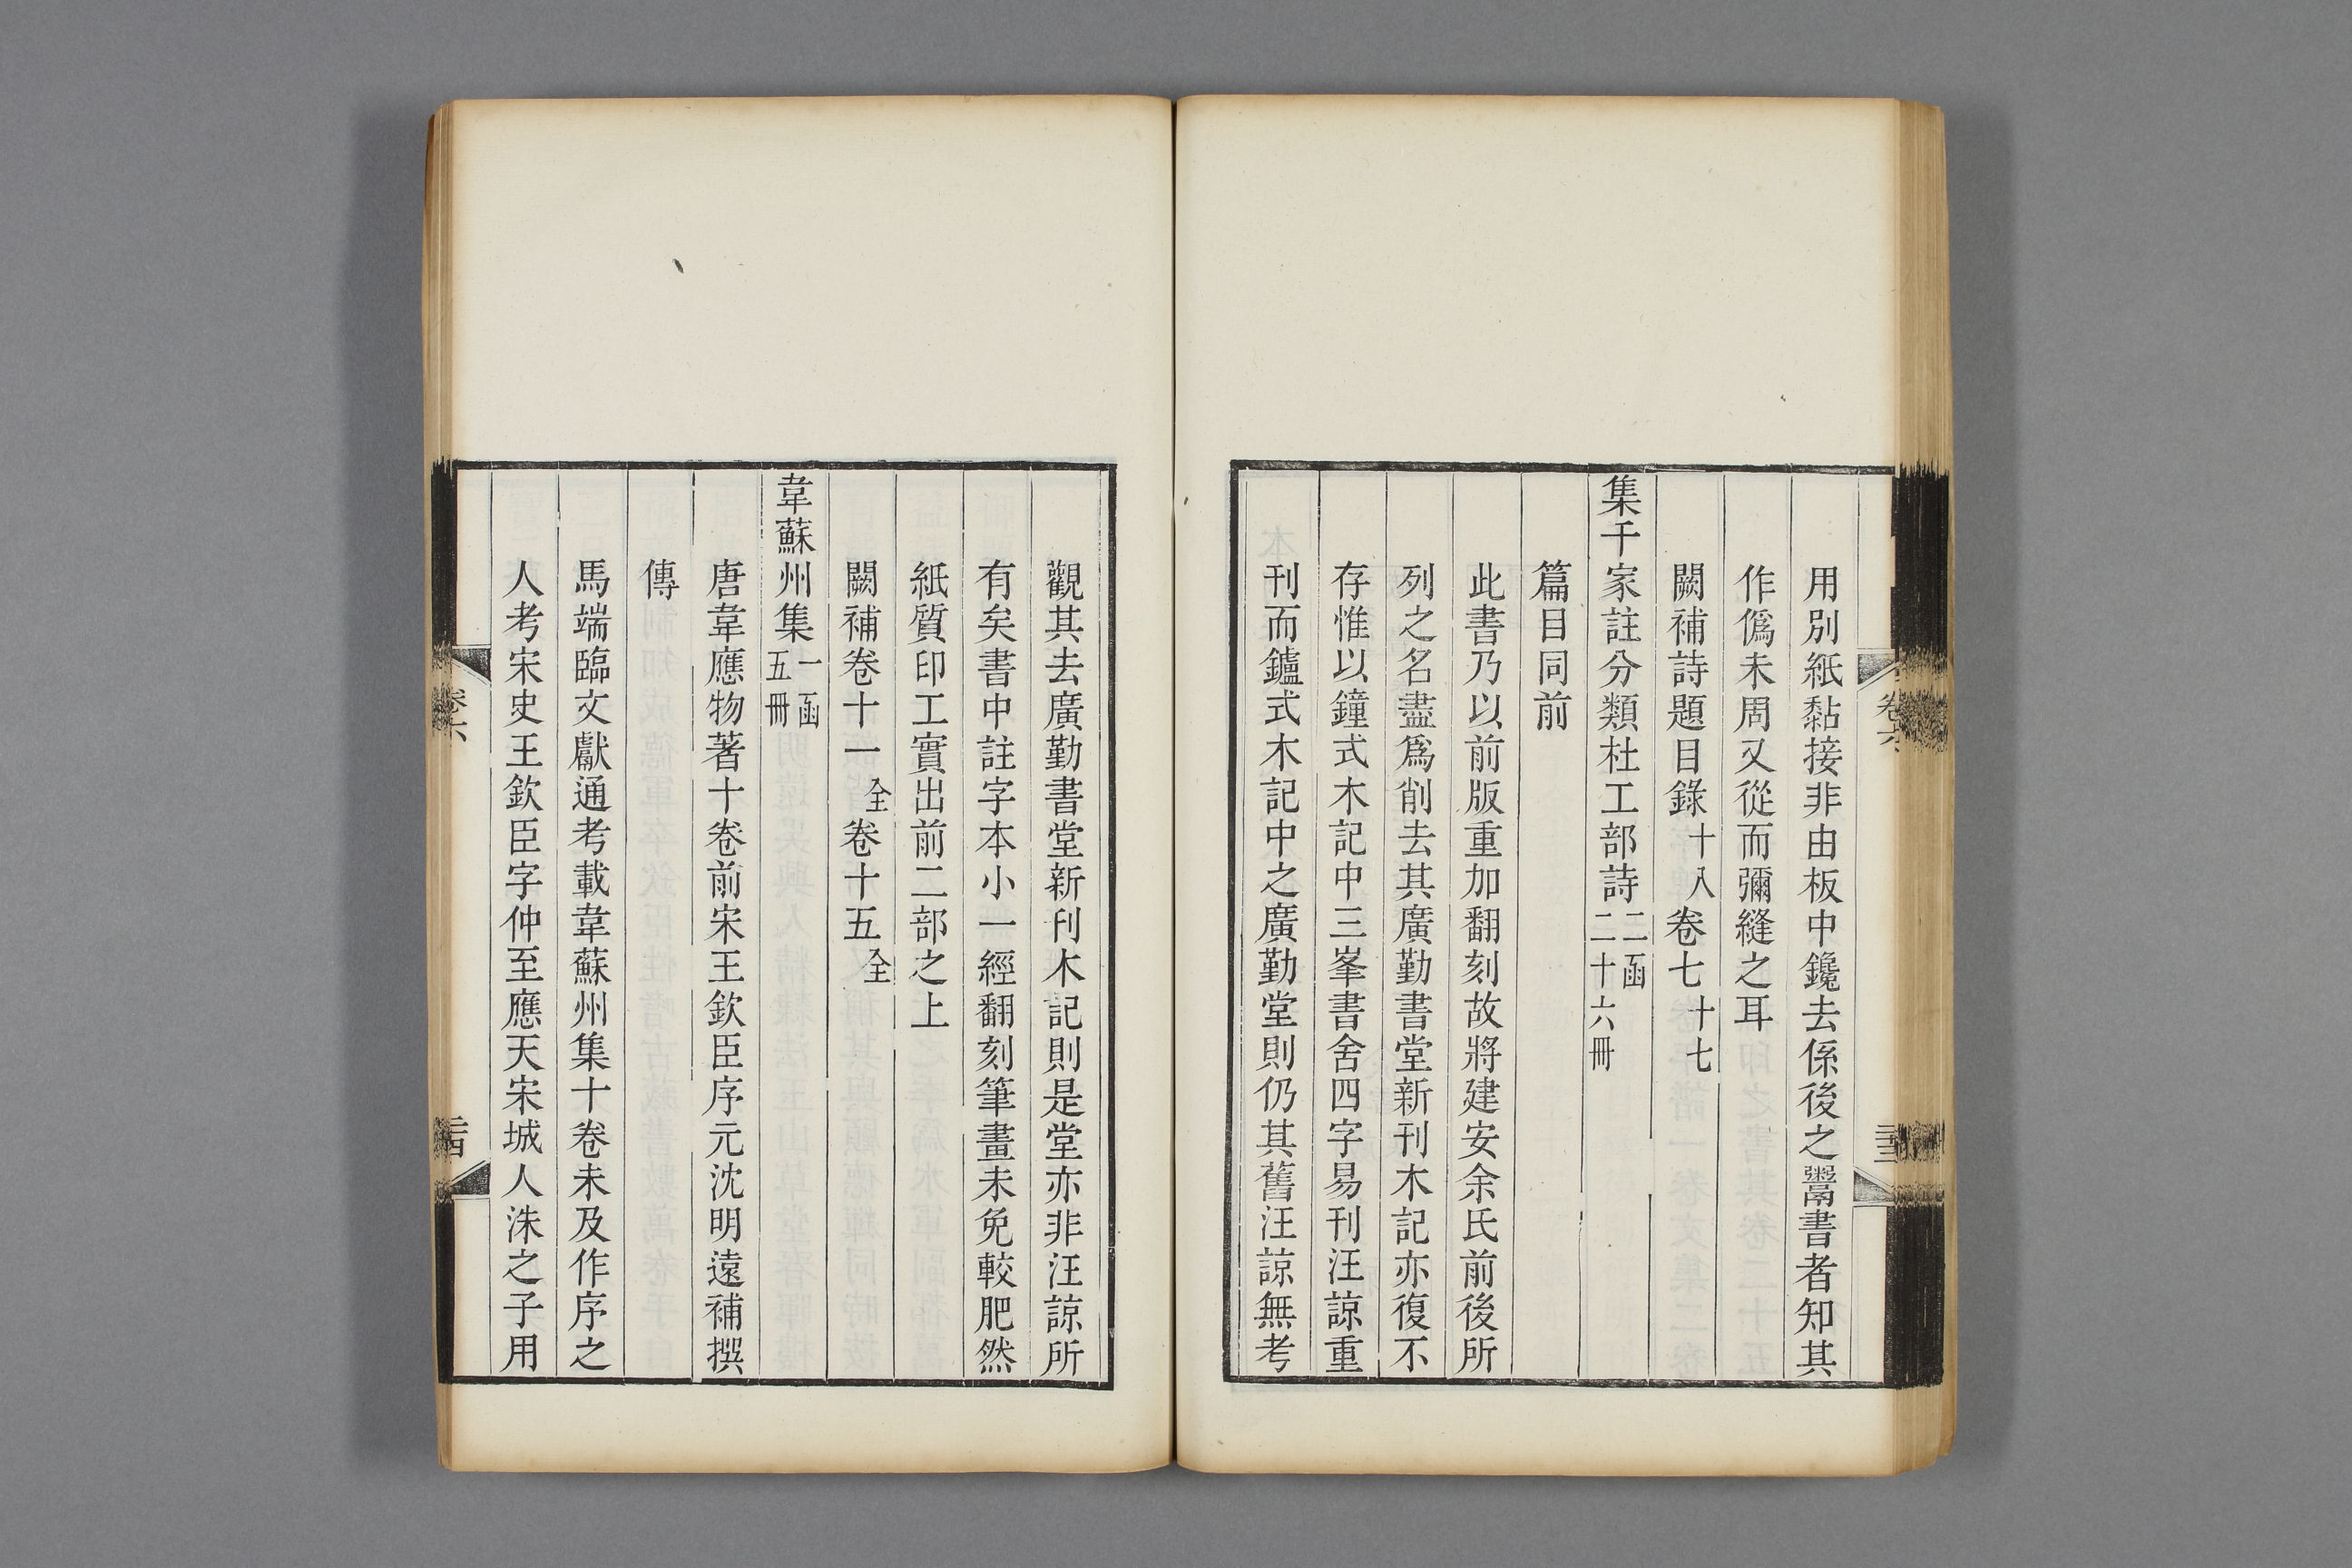 用別紙黏接非由板中鑱去係後之鬻書者知其
作僞未周又從而彌縫之耳
闕補詩題目錄十八卷七十七
集千家註分類杜工部詩二函二十六冊
篇目同前
此書乃以前版重加翻刻故將建安余氏前後所
列之名盡爲削去其廣勤書堂新刊木記亦復不
存惟以鐘式木記中三峯書舍四字易刊汪諒重
刊而鑪式木記中之廣勤堂則仍其舊汪諒無考
卷六
二十三
觀其去廣勤書堂新刊木記則是堂亦非汪諒所
有矣書中註字本小一經翻刻筆畫未免較肥然
紙質印工實出前二部之上
闕補卷十一全卷十五全
韋蘇州集一函五冊
唐韋應物著十卷前宋王欽臣序元沈明遠補撰
傳
馬端臨文獻通考載韋蘇州集十卷未及作序之
人考宋史王欽臣字仲至應天宋城人洙之子用
卷六
二十四